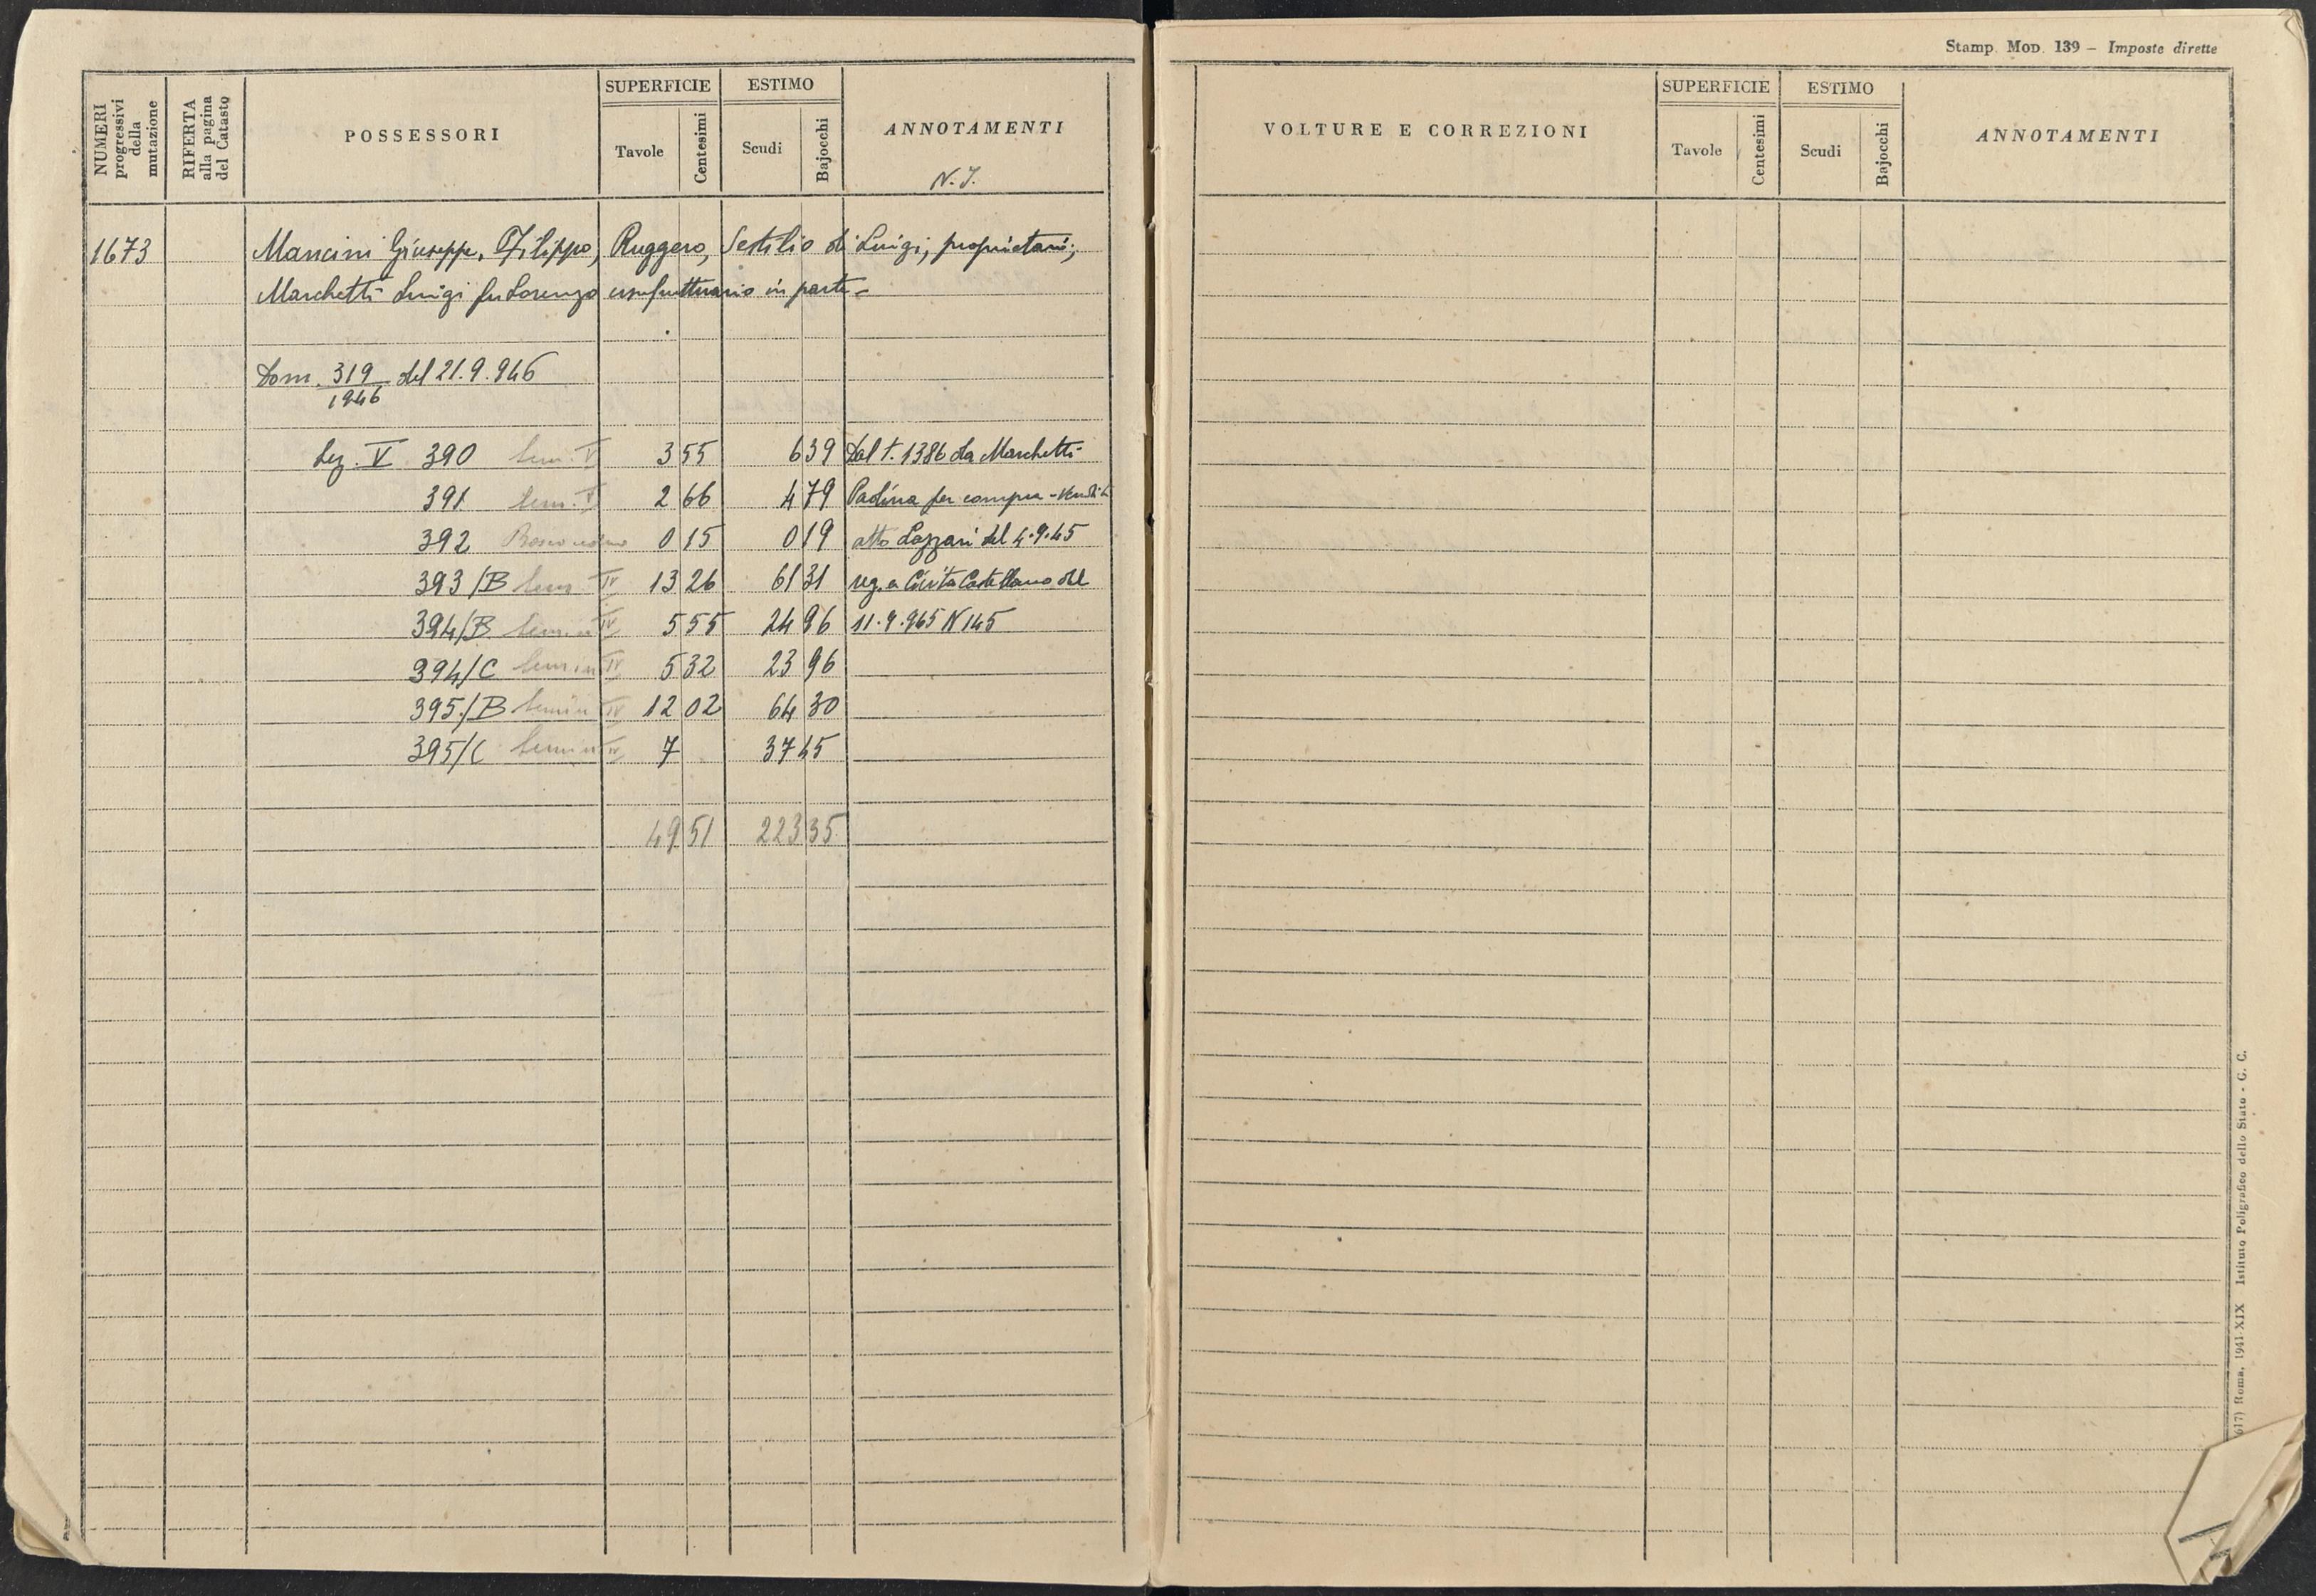 NUMERI progressivi della mutazione
RIFERTA alla pagina del Catasto
POSSESSORI
SUPERFICIE
Tavole
Centesimi
ESTIMO
Scudi
Bajocchi
ANNOTAMENTI
N. I.
1673
Mancini Giuseppe, Filippo, Ruggero, Sestilio di Luigi, proprietari;
Marchetti Luigi fu Lorenzo usufruttuario in parte -
Dom. 319/1946 del 21.9.946
Sez. V 390 Sem. V 3 55 6 39 Dal t. 1386 da Marchetti
391 Sem. V 2 66 4 79 Paolina per compra-vendita
392 Bosco ceduo 0 15 0 19 atto Lazzari del 4.9.45
393/B Sem. IV 13 26 61 31 reg. a Civita Castellana del
394/B Semin IV 5 55 24 96 11.9.965 N 145
394/C Semin IV 5 32 23 96
395/B Semin IV 12 02 64 30
395/C Semin IV 7 37 45
49 51 223 35
Stamp. Mod. 139 – Imposte dirette
VOLTURE E CORREZIONI
SUPERFICIE
Tavole
Centesimi
ESTIMO
Scudi
Bajocchi
ANNOTAMENTI
617) Roma, 1941-XIX Istituto Poligrafico dello Stato - G. C.